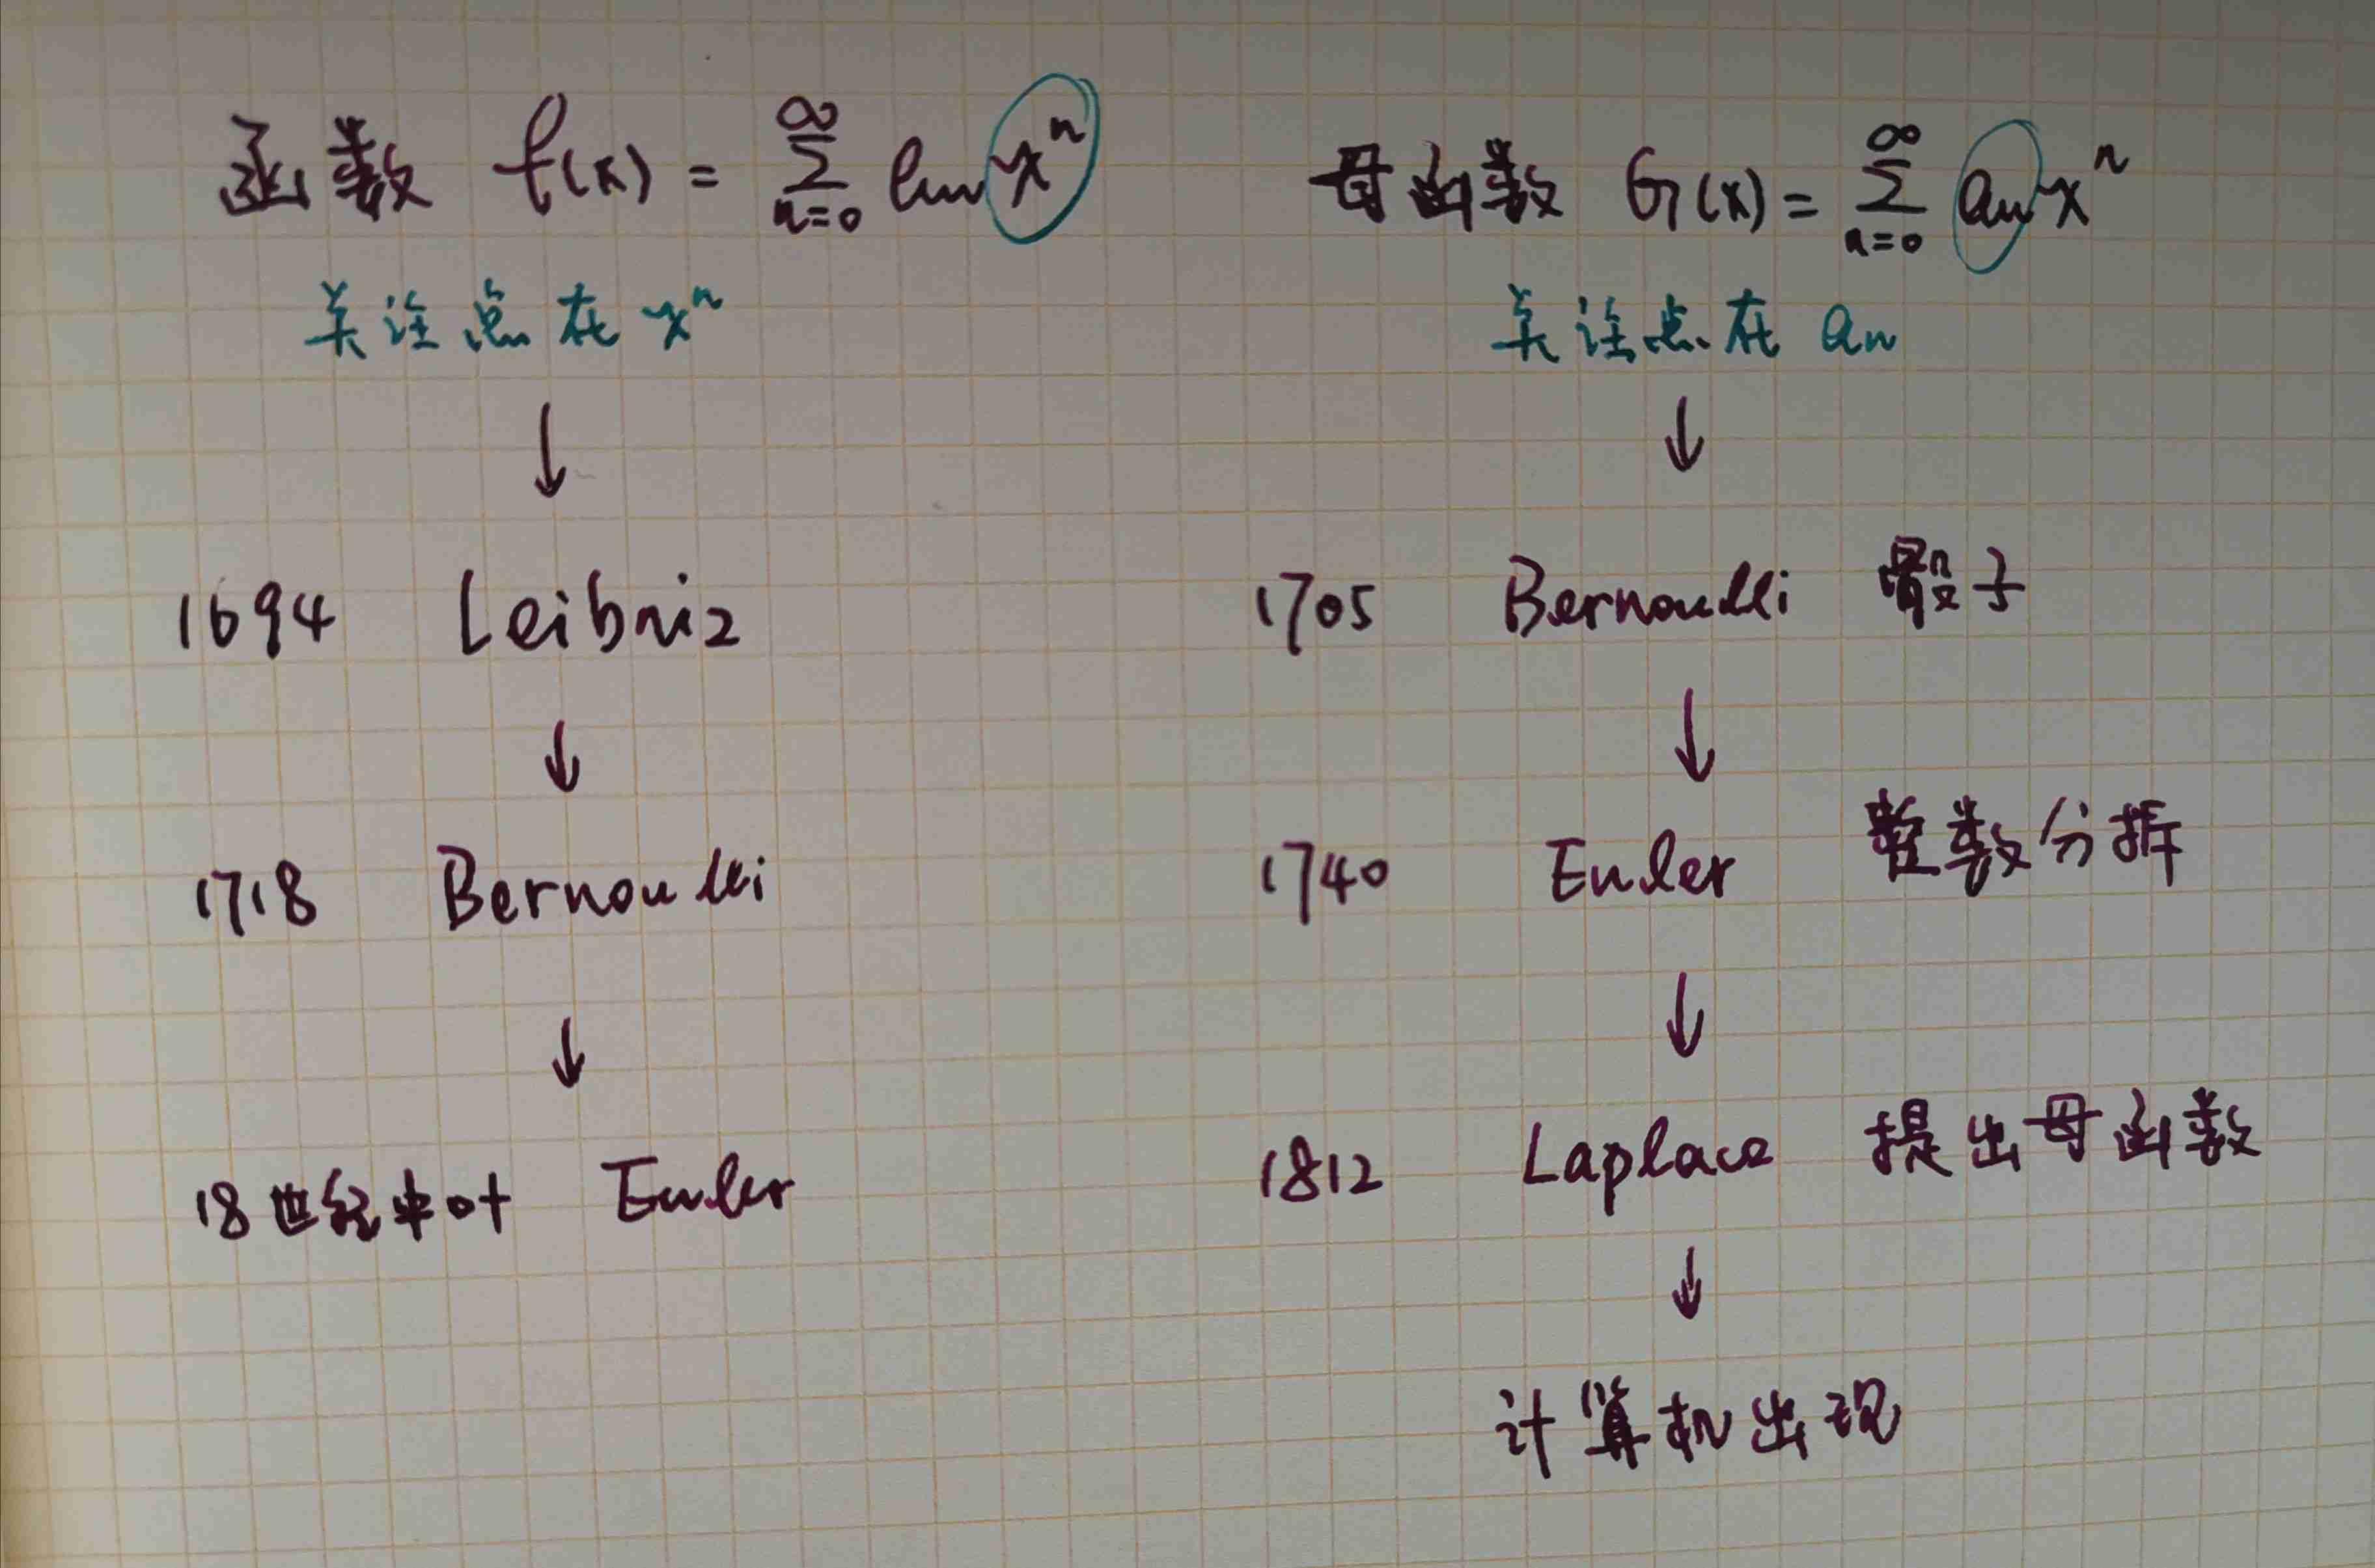 函数 f(x) = ∞∑n=0 anxⁿ
关注点在 xⁿ
↓
1694 Leibniz
↓
1718 Bernoulli
↓
18世纪中叶 Euler
母函数 G(x) = ∞∑n=0 anxⁿ
关注点在 an
↓
1705 Bernoulli 骰子
↓
1740 Euler 整数分拆
↓
1812 Laplace 提出母函数
↓
计算机出现